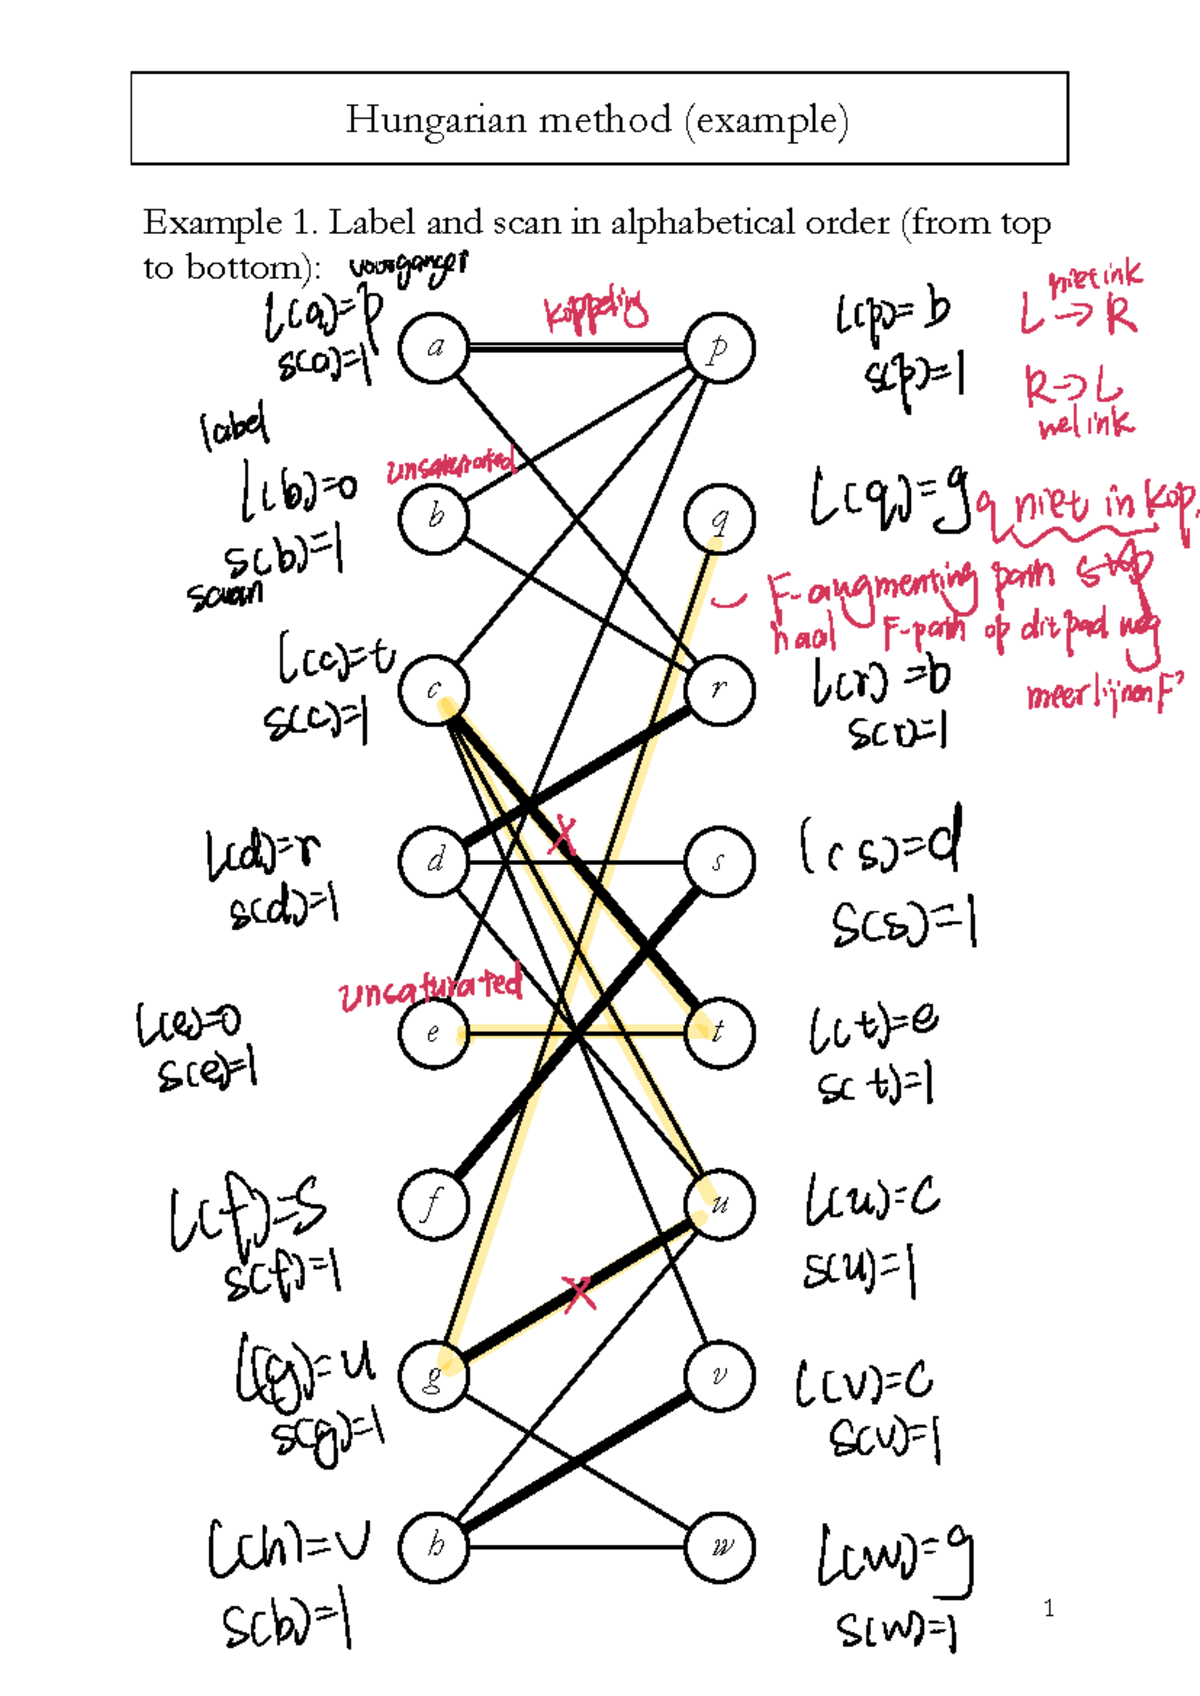 Hungarian method (example)
Example 1. Label and scan in alphabetical order (from top
to bottom): voorganger
l(a)=p
s(a)=1
koppeling
a
p
l(p)=b
s(p)=1
niet in k
L → R
R → L
wel in k
label
l(b)=0
s(b)=1
scan
unsaturated
b
q
l(q)=g
q niet in kop.
F-augmenting path stop
haal F-path op dit pad weg
meer lijnen F'
l(c)=t
s(c)=1
c
r
l(r)=b
s(r)=1
l(d)=r
s(d)=1
d
s
l(s)=d
s(s)=1
x
unsaturated
l(e)=0
s(e)=1
e
t
l(t)=e
s(t)=1
l(f)=s
s(f)=1
f
u
l(u)=c
s(u)=1
x
l(g)=u
s(g)=1
g
v
l(v)=c
s(v)=1
l(h)=v
s(b)=1
h
w
l(w)=g
s(w)=1
1